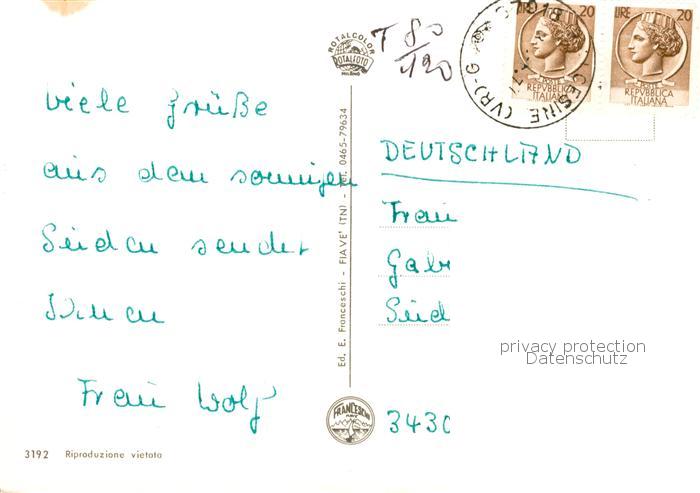 ROTALCOLOR
ROTALFOTO
MILANO
T 80/120
20
LIRE 20
POSTE
REPVBBLICA
ITALIANA
POSTE
REPVBBLICA
ITALIANA
CESINE (VR)-G
viele Grüße
aus dem sonnigen
Süden sendet
Ihnen
Frau Wolf
Ed. E. Franceschi - FIAVE' (TN) - Tel. 0465-79634
FRANCESCHI
DEUTSCHLAND
Frau
Gabr
Seid
privacy protection
Datenschutz
3430
3192 Riproduzione vietata